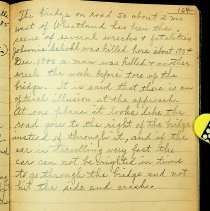 164
The bridge on road 50 about 2 mi
west of Wheatland has been the
scene of several wrecks &
Johnnie Scholl was killed here about 193
Dec 1940 a man was killed & another
wreck the week before tore up the
bridge. It is said that there is an
optical illusion at the approach.
At one place it looks like the
road goes to the right of the bridge
instead of through it, and if the
car is travelling very fast the
car can not be righted in time
to go through the bridge and not
hit the side and crash.